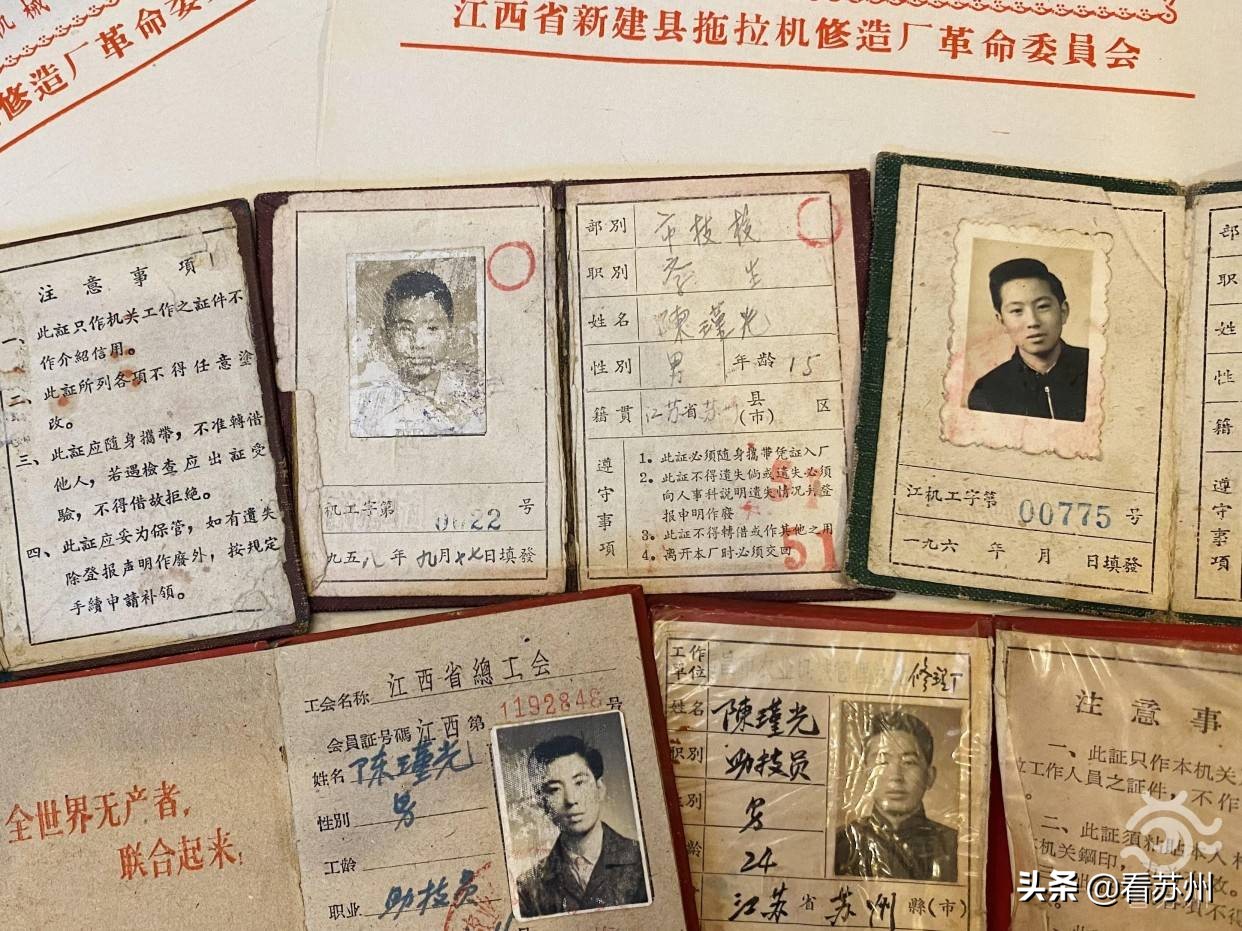 机械
修造厂革命委
江西省新建县拖拉机修造厂革命委員会
注意事項
一、此証只作机关工作之証件不
作介紹信用。
二、此証所列各項不得任意塗
改。
三、此証应随身攜帶,不准轉借
他人,若遇檢查应出証受
驗,不得借故拒絶。
四、此証应妥为保管,如有遺失
除登报声明作廢外,按規定
手續申請补領。
机工字第 0022 号
九五八年九月十七日填發
部別
职別 学生
姓名 陳瑾光
性別 男 年龄 15
籍貫 江苏省苏州 县(市) 区
遵守事項
1. 此証必须随身攜带凭証入厂
2. 此証不得遺失倘或遺失必须
向人事科說明遺失情况并登
报申明作廢
3. 此証不得轉借或作其他之用
4. 离开本厂时必须交回
江机工字第 00775 号
一九六 年 月 日填發
部
职
姓
性
籍
遵守事項
全世界无产者,
联合起来!
工会名称 江西省總工会
会員証号碼江西第 1192848 号
姓名 陈瑾光
性別 男
工齡
职业 助技员
工作单位 修造厂
姓名 陳瑾光
职別 助技员
性別 男
齡 24
江苏省苏州縣(市)
注意事
一、此証只作本机关
工作人員之証件,不作
。
二、此証須粘貼本人相
机关鋼印,
改。
头条 @看苏州